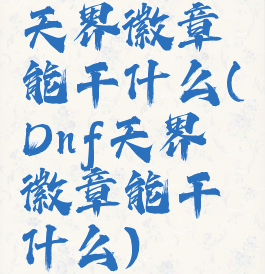 天界徽章
能干什么(
Dnf天界
徽章能干
什么)